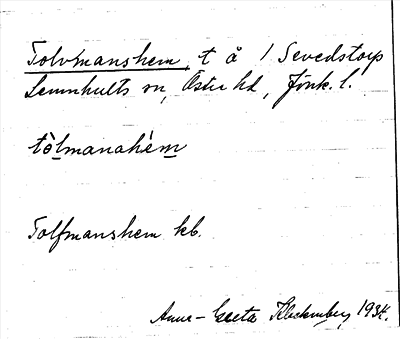 Tolvmanshem, t å 1 Sevedstorp
Lemnhults sn, Östra hd, Jönk. l.
tòlmanahém
Tolfmanshem kb.
Anna-Greta Klockenberg 1934.